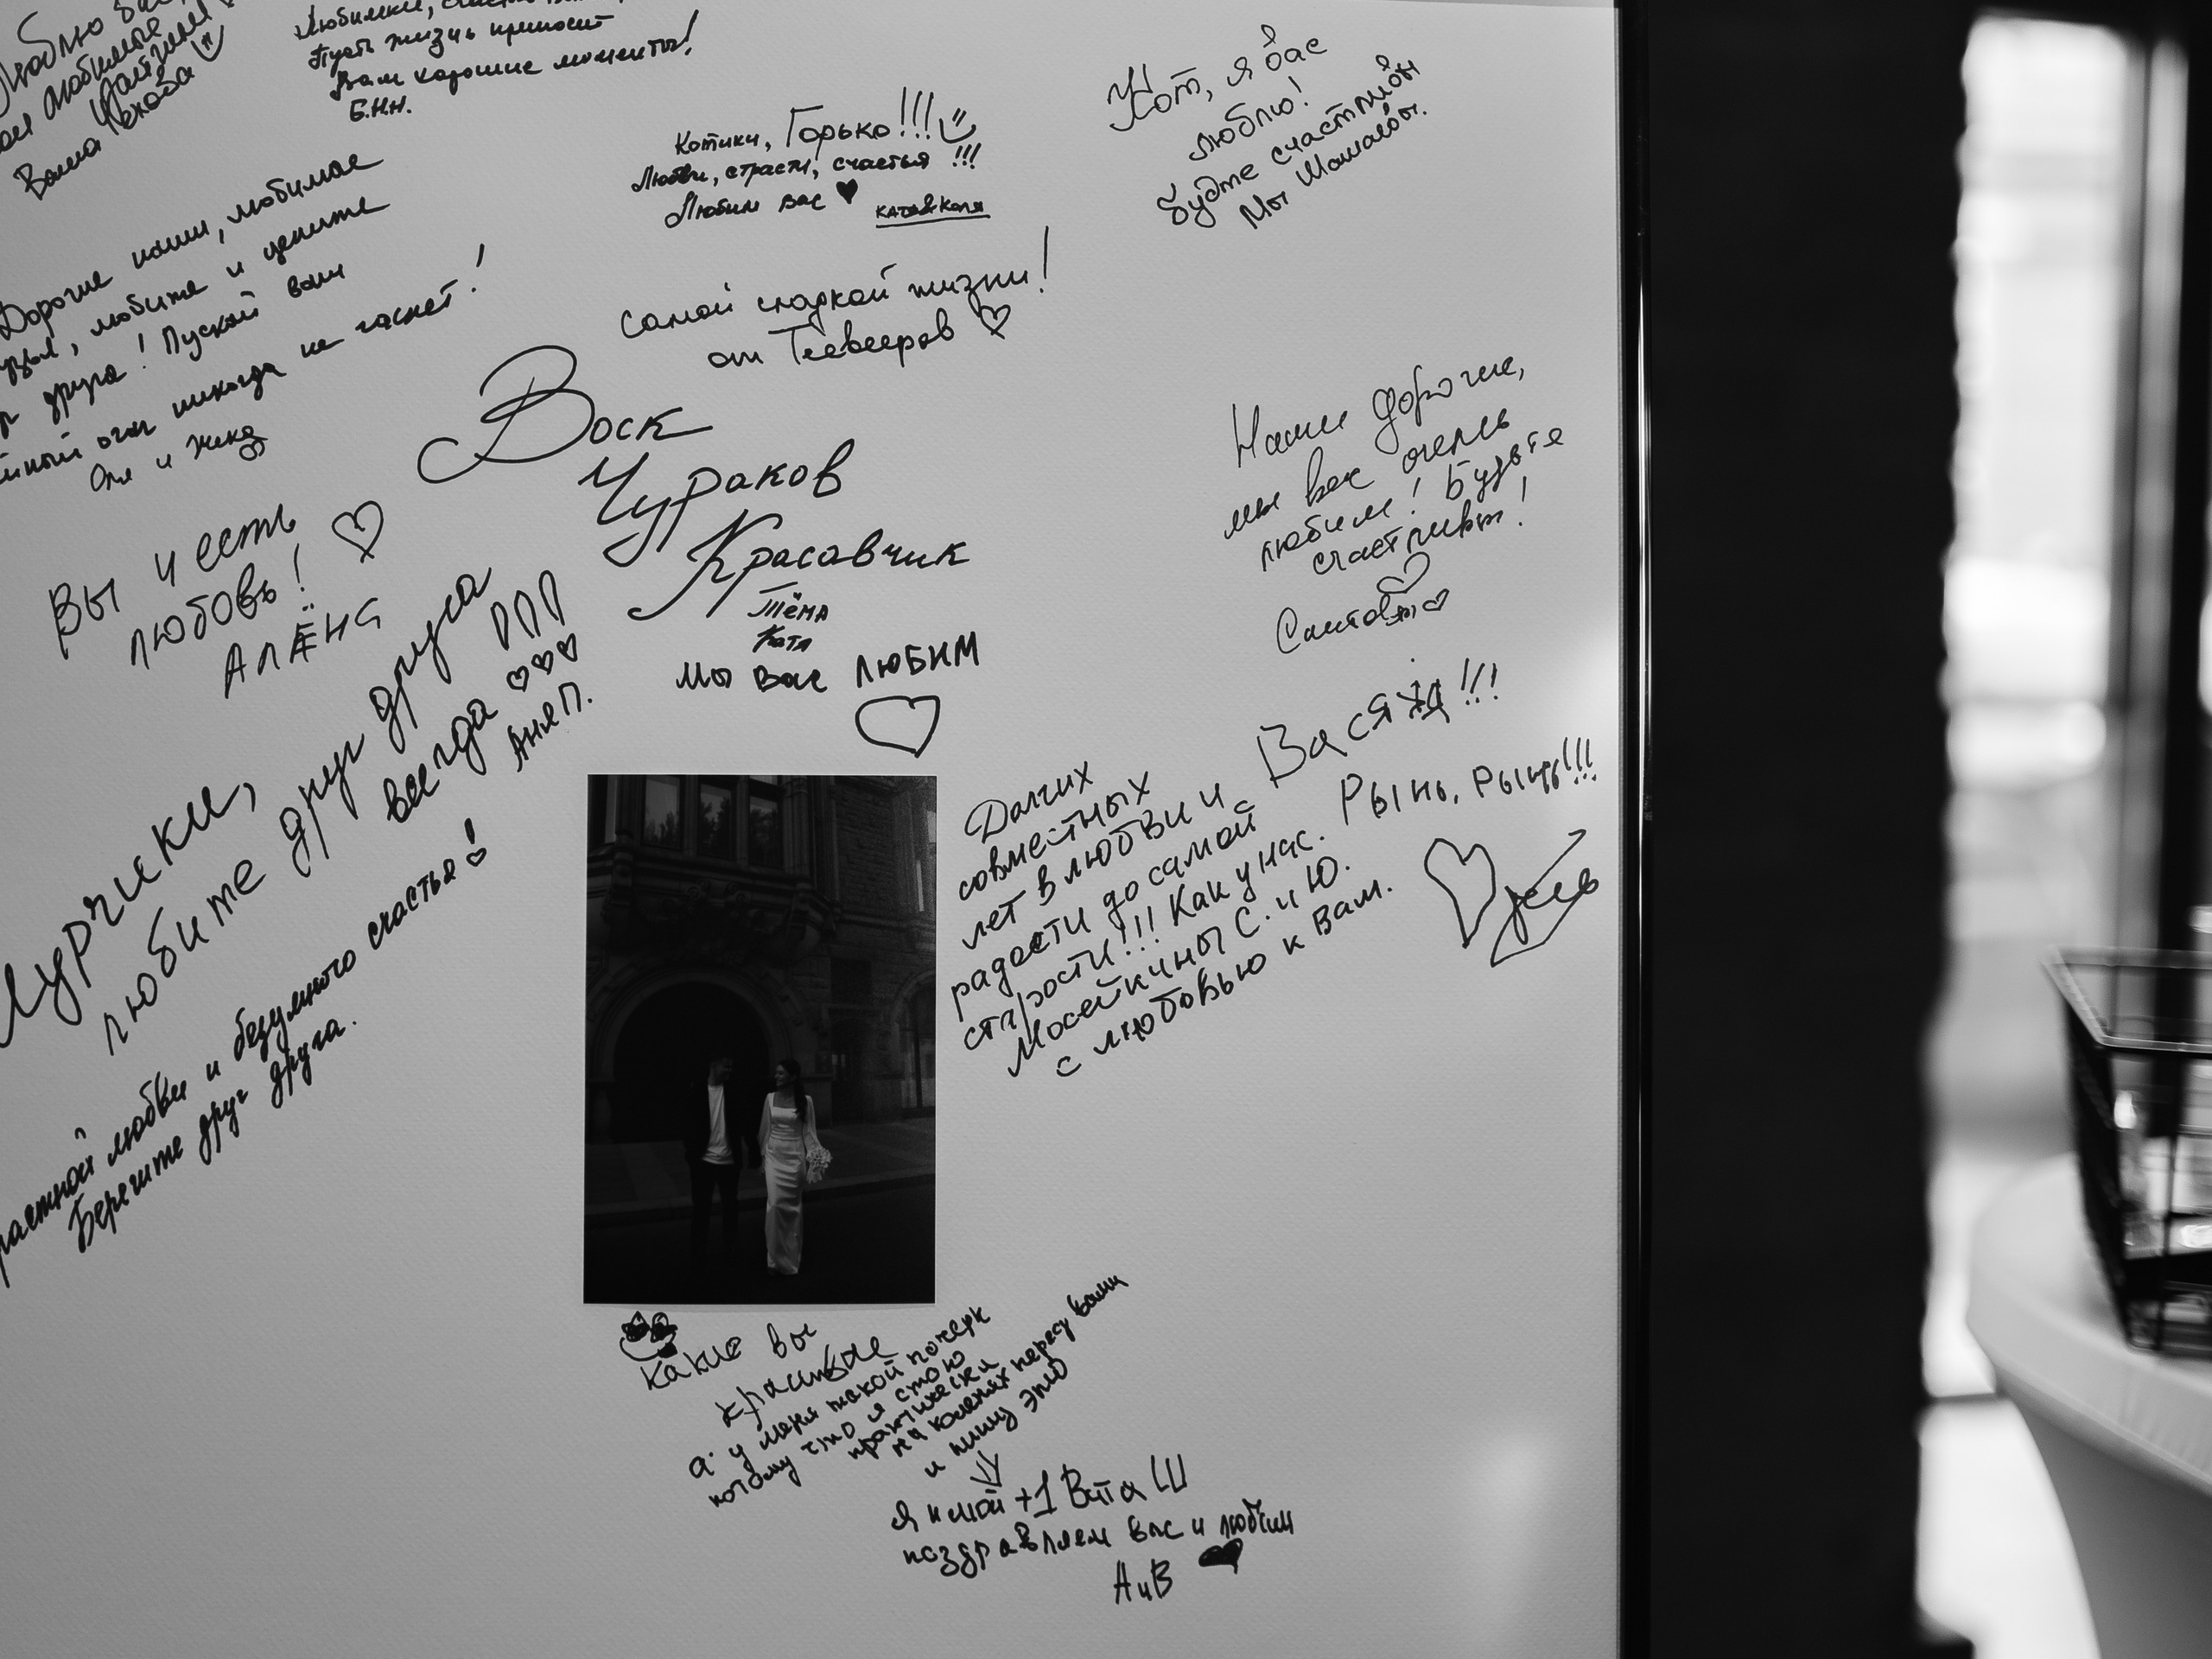 Люблю вас,
мои любимые
Ваша
Пусть жизнь приносит
Вам хорошие моменты!
Б.Н.Н.
Котики, Горько!!!
Любви, страсти, счастья !!!
Любим вас ♥
Катя&Коля
Кот, я вас
люблю!
Мы
Дорогие наши, любимые
любите и цените
друг друга! Пускай ваш
очаг никогда не гаснет!
Оля и Женя
Самой сладкой жизни!
от ♡
Воск
Чураков
Красавчик
Тёма
Катя
Мы Вас ЛЮБИМ
♡
Вы и есть
любовь! ♡
АЛЁНА
Мурчики,
любите друг друга
всегда ♡♡♡
Аня П.
любви и безумного счастья!
Берегите друг друга.
Наши дорогие,
мы вас очень
любим! Будьте
счастливы!
♡
Вася !!!
Рынь, рынь!!!
Долгих
совместных
лет в любви и
радости до самой
старости!!! Как у нас.
Мосейкины С. и Ю.
с любовью к Вам.
Какие вы
красивые
а у меня такой почерк
потому что я стою
практически
на коленях перед вами
и пишу это
Я и мой +1 Витя Ш
поздравляем вас и любим
А и В ♥